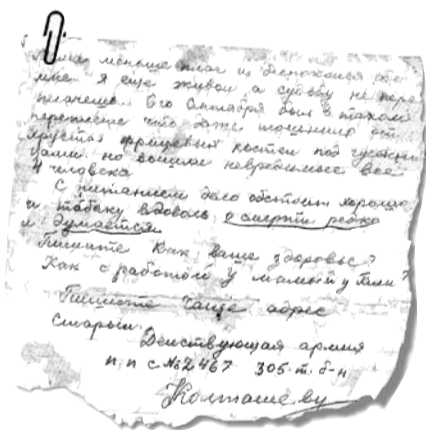 меньше плач и беспокойся обо
мне я еще живой а судьбу не пере
6го Октября был в таком
переплете что даже тошнило от
хруста фрицевых костей под гусени
цами. но вышли невредимые все
4 человека
С питанием дело обстоит хорошо
и табаку вдоволь о смерти редко
и думается
Пишите Как ваше здоровье?
Как с работой у мамы и у Гали?
Пишите чаще адрес
старый.
Действующая армия
п/п с №2467 305 т. б-н
Колташеву